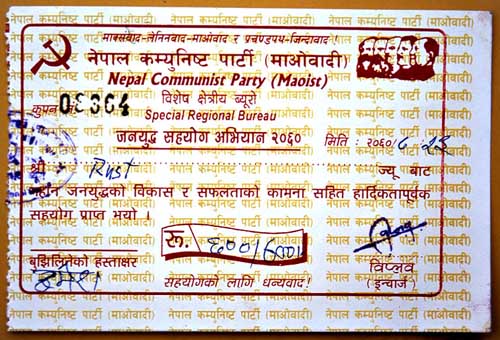 मार्क्सवाद-लेनिनवाद-माओवाद र प्रचण्डपथ-जिन्दावाद !
नेपाल कम्युनिष्ट पार्टी (माओवादी)
Nepal Communist Party (Maoist)
कुपन नं. 03364
विशेष क्षेत्रीय ब्यूरो
Special Regional Bureau
जनयुद्ध सहयोग अभियान २०६०
मिति : २०६०/८/२३
श्री Rust ज्यू बाट
महान जनयुद्धको विकास र सफलताको कामना सहित हार्दिकतापूर्वक
सहयोग प्राप्त भयो ।
रू. ६००/600/
बुझिलिनेको हस्ताक्षर
विप्लव
(इन्चार्ज)
सहयोगको लागि धन्यवाद !